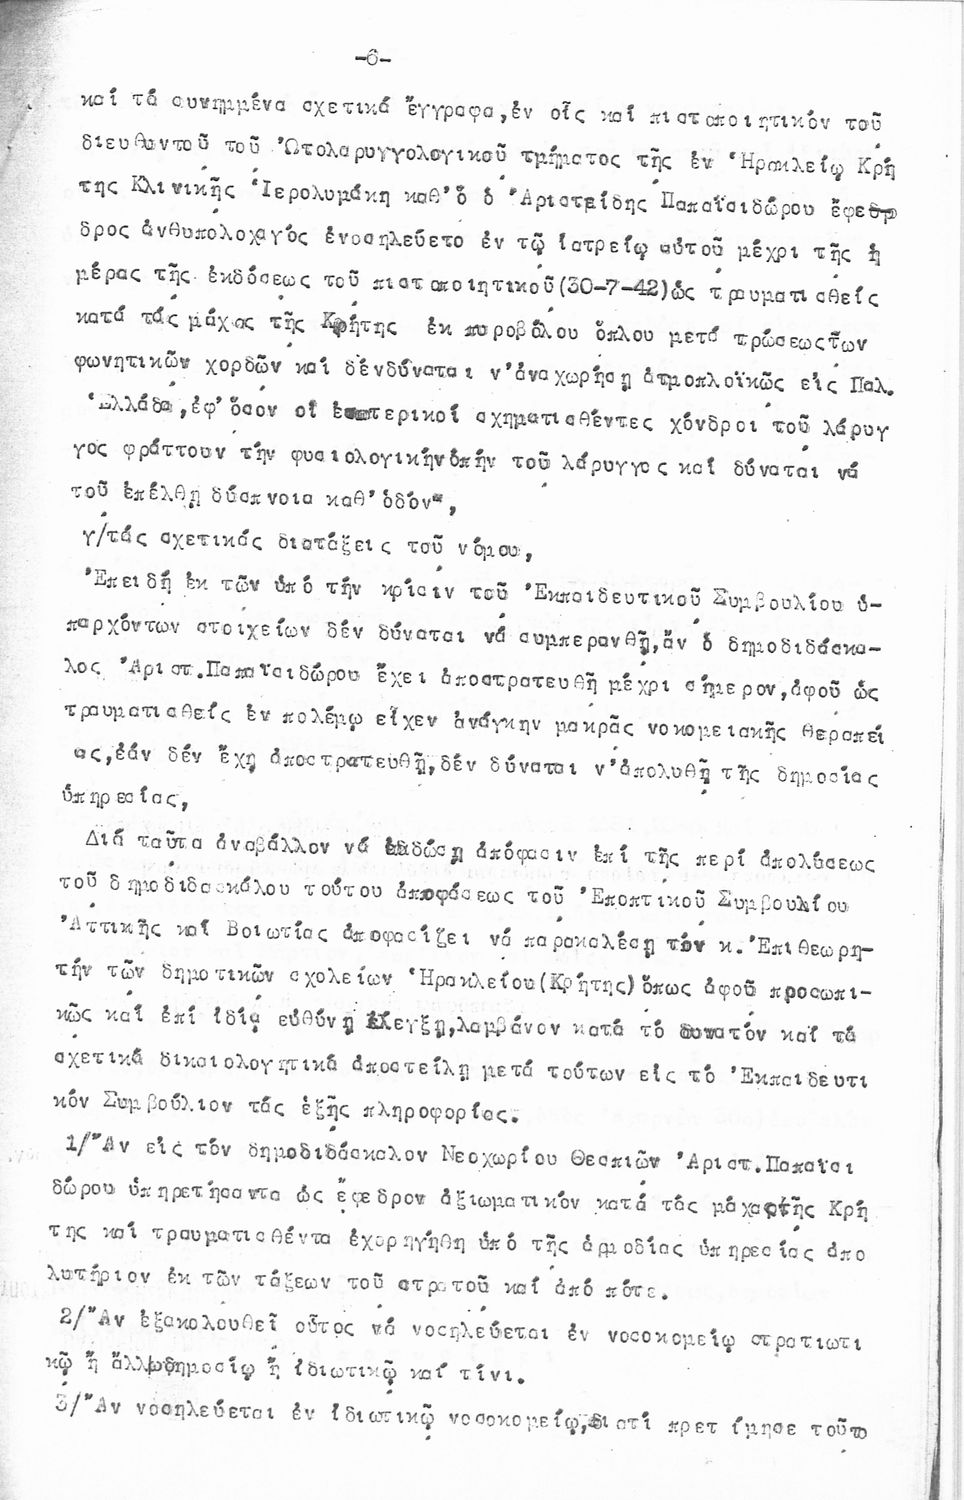 -6-
καί τά συνημμένα σχετικά ἔγγραφα,ἐν οἷς καί πιστοποιητικόν τοῦ
διευθυντοῦ τοῦ Ὠτολαρυγγολογικοῦ τμήματος τῆς ἐν Ἡρακλείῳ Κρή
της Κλινικῆς Ἱερολυμάκη καθ'ὅ ὁ Ἀριστείδης Παπαϊσιδώρου ἔφεδρ
δρος ἀνθυπολοχαγός ἐνοσηλεύετο ἐν τῷ ἰατρείῳ αὐτοῦ μέχρι τῆς ἡ
μέρας τῆς ἐκδόσεως τοῦ πιστοποιητικοῦ(30-7-42)ὡς τραυματισθείς
κατά τάς μάχας τῆς Κρήτης ἐκ πυροβόλου ὅπλου μετά τρώσεωςτῶν
φωνητικῶν χορδῶν καί δένδύναται ν'ἀναχωρήσῃ ἀτμοπλοϊκῶς εἰς Παλ.
Ἑλλάδα,ἐφ'ὅσον οἱ ἐσωτερικοί σχηματισθέντες χόνδροι τοῦ λάρυγ
γος φράττουν τήν φυσιολογικήνὀπήν τοῦ λάρυγγος καί δύναται νά
τοῦ ἐπέλθῃ δύσπνοια καθ'ὁδόν",
γ/τάς σχετικάς διατάξεις τοῦ νόμου,
Ἐπειδή ἐκ τῶν ὑπό τήν κρίσιν τοῦ Ἐκπαιδευτικοῦ Συμβουλίου ὑ-
παρχόντων στοιχείων δέν δύναται νά συμπερανθῇ,ἄν ὁ δημοδιδάσκα-
λος Ἀριστ.Παπαϊσιδώρου ἔχει ἀποστρατευθῆ μέχρι σήμερον,ἀφοῦ ὡς
τραυματισθείς ἐν πολέμῳ εἶχεν ἀνάγκην μακρᾶς νοκομειακῆς θεραπεί
ας,ἐάν δέν ἔχῃ ἀποστρατευθῆ,δέν δύναται ν'ἀπολυθῇ τῆς δημοσίας
ὑπηρεσίας,
Διά ταῦτα ἀναβάλλον νά ἐκδώσῃ ἀπόφασιν ἐπί τῆς περί ἀπολύσεως
τοῦ δημοδιδασκάλου τούτου ἀποφάσεως τοῦ Ἐποπτικοῦ Συμβουλίου
Ἀττικῆς καί Βοιωτίας ἀποφασίζει νά παρακαλέσῃ τόν κ.Ἐπιθεωρη-
τήν τῶν δημοτικῶν σχολείων Ἡρακλείου(Κρήτης)ὅπως ἀφοῦ προσωπι-
κῶς καί ἐπί ἰδίᾳ εὐθύνῃ ἐλέγξῃ,λαμβάνον κατά τό δυνατόν καί τά
σχετικά δικαιολογητικά ἀποστείλῃ μετά τούτων εἰς τό Ἐκπαιδευτι
κόν Συμβούλιον τάς ἑξῆς πληροφορίας.
1/"Αν εἰς τόν δημοδιδάσκαλον Νεοχωρίου Θεσπιῶν Ἀριστ.Παπαϊσι
δώρου ὑπηρετήσαντα ὡς ἔφεδρον ἀξιωματικόν κατά τάς μάχαςτῆς Κρή
της καί τραυματισθέντα ἐχορηγήθη ὑπό τῆς ἁρμοδίας ὑπηρεσίας ἀπο
λυτήριον ἐκ τῶν τάξεων τοῦ στρατοῦ καί ἀπό πότε.
2/"Αν ἐξακολουθεῖ οὗτος νά νοσηλεύεται ἐν νοσοκομείῳ στρατιωτι
κῷ ἤ ἄλλῳδημοσίῳ ἤ ἰδιωτικῷ καί τίνι.
3/"Αν νοσηλεύεται ἐν ἰδιωτικῷ νοσοκομείῳ,διατί προετίμησε τοῦτο